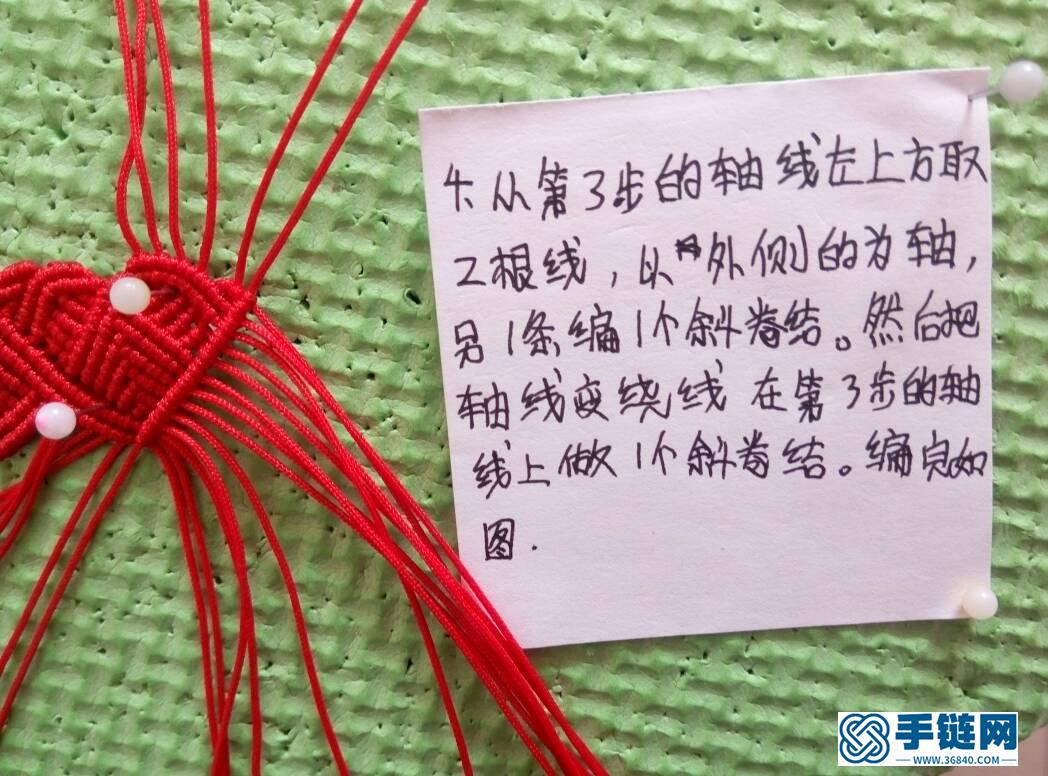 4、从第3步的轴线左上方取
2根线，以外侧的为轴，
另1条编1个斜卷结。然后把
轴线变绕线在第3步的轴
线上做1个斜卷结。编完如
图.
手链网
WWW.36840.COM